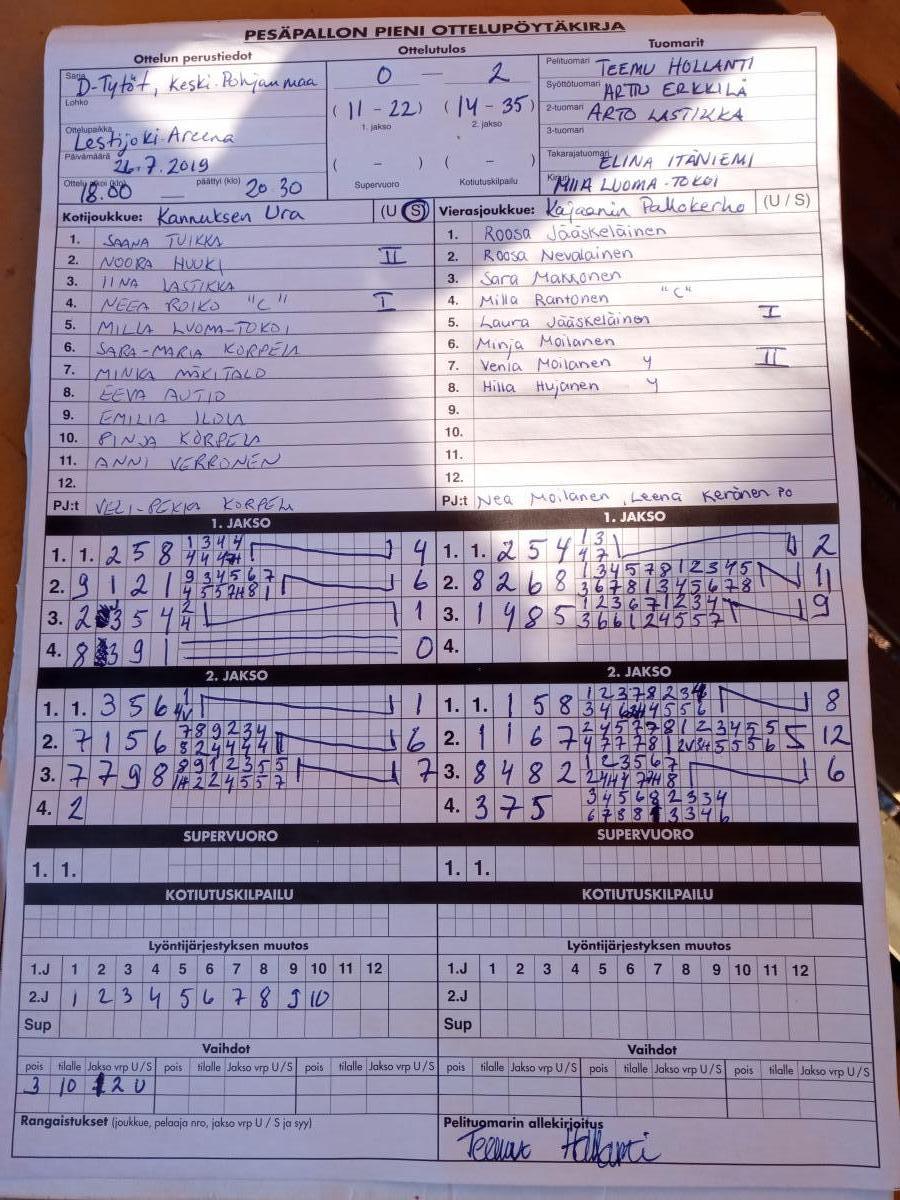 PESÄPALLON PIENI OTTELUPÖYTÄKIRJA
Ottelun perustiedot
Sarja D-Tytöt, Keski-Pohjanmaa
Lohko
Ottelupaikka Lestijoki-Areena
Päivämäärä 26.7.2019
Ottelu alkoi (klo) 18.00 — päättyi (klo) 20.30
Ottelutulos
0 — 2
( 11 - 22 ) ( 14 - 35 )
1. jakso 2. jakso
( - ) ( - )
Supervuoro Kotiutuskilpailu
Tuomarit
Pelituomari TEEMU HOLLANTI
Syöttötuomari ARTTU ERKKILÄ
2-tuomari ARTO LASTIKKA
3-tuomari
Takarajatuomari ELINA ITÄNIEMI
Kirjuri MIIA LUOMA-TOKOI
Kotijoukkue: Kannuksen Ura (U S)
1. SAANA TUIKKA
2. NOORA HUUKI II
3. IINA LASTIKKA
4. NEEA ROIKO "C" I
5. MILLA LUOMA-TOKOI
6. SARA-MARIA KORPELA
7. MINKA MÄKITALO
8. EEVA AUTIO
9. EMILIA ILOLA
10. PINJA KORPELA
11. ANNI VERRONEN
12.
PJ:t VELI-PEKKA KORPELA
Vierasjoukkue: Kajaanin Pallokerho (U / S)
1. Roosa Jääskeläinen
2. Roosa Nevalainen
3. Sara Makkonen
4. Milla Rantonen "C"
5. Laura Jääskeläinen I
6. Minja Moilanen
7. Venla Moilanen y II
8. Hilla Hujanen y
9.
10.
11.
12.
PJ:t Nea Moilanen, Leena Keränen PO
1. JAKSO
1. 1. 2 5 8 4
2. 9 1 2 1 6
3. 2 3 5 4 1
4. 8 3 9 1 0
1. JAKSO
1. 1. 2 5 4 2
2. 8 2 6 8 11
3. 1 4 8 5 9
4.
2. JAKSO
1. 1. 3 5 6 1
2. 7 1 5 6 6
3. 7 7 9 8 7
4. 2
2. JAKSO
1. 1. 1 5 8 8
2. 1 1 6 7 12
3. 8 4 8 2 6
4. 3 7 5
SUPERVUORO
1. 1.
SUPERVUORO
1. 1.
KOTIUTUSKILPAILU
KOTIUTUSKILPAILU
Lyöntijärjestyksen muutos
1.J 1 2 3 4 5 6 7 8 9 10 11 12
2.J 1 2 3 4 5 6 7 8 9 10
Sup
Lyöntijärjestyksen muutos
1.J 1 2 3 4 5 6 7 8 9 10 11 12
2.J
Sup
Vaihdot
pois tilalle Jakso vrp U/S pois tilalle Jakso vrp U/S pois tilalle Jakso vrp U/S
3 10 2 U
Vaihdot
pois tilalle Jakso vrp U/S pois tilalle Jakso vrp U/S pois tilalle Jakso vrp U/S
Rangaistukset (joukkue, pelaaja nro, jakso vrp U / S ja syy)
Pelituomarin allekirjoitus
Teemu Hollanti